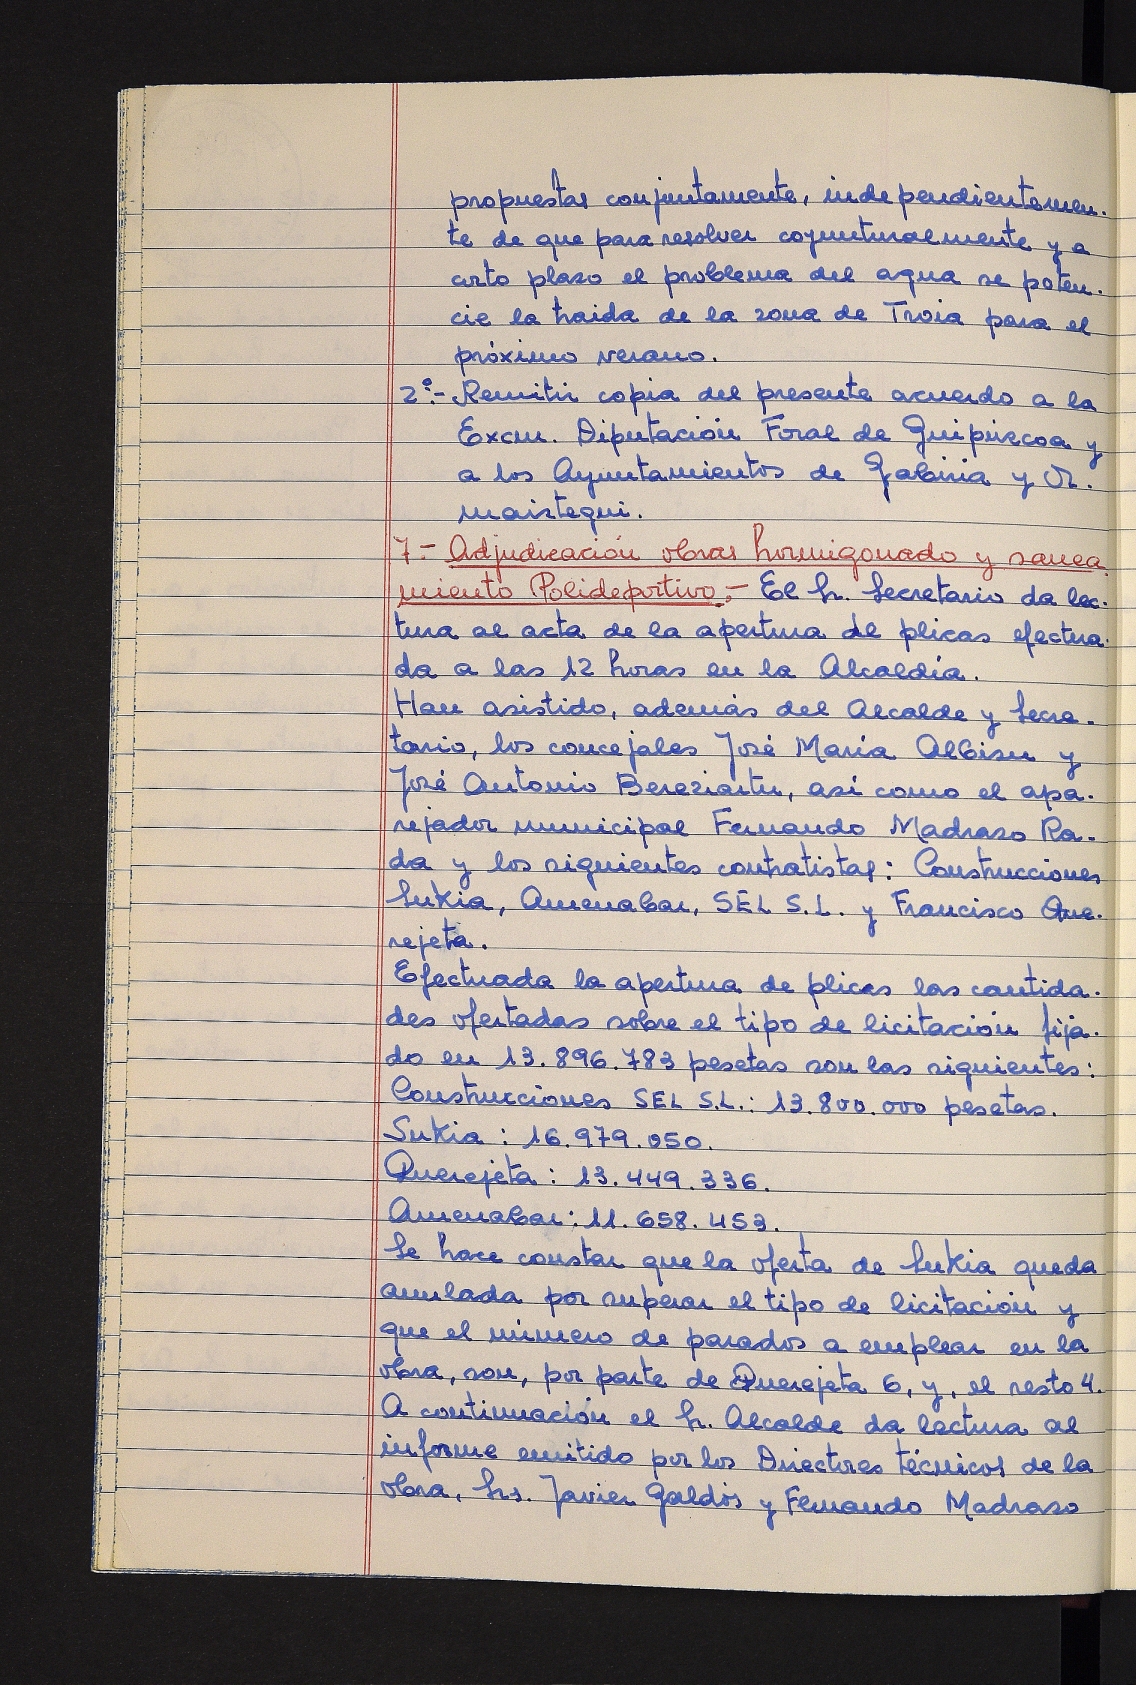 propuestas conjuntamente, independientemen-
te de que para resolver coyunturalmente y a
corto plazo el problema del agua se poten-
cie la traida de la zona de Troia para el
próximo verano.
2º.- Remitir copia del presente acuerdo a la
Excm. Diputación Foral de Guipúzcoa y
a los Ayuntamientos de Gabiria y Or-
maiztegui.
7.- Adjudicación obras hormigonado y sanea-
miento Polideportivo.- El Sr. Secretario da lec-
tura al acta de la apertura de plicas efectua-
da a las 12 horas en la Alcaldía.
Han asistido, además del Alcalde y Secre-
tario, los concejales José María Albisu y
José Antonio Bereziartu, así como el apa-
rejador municipal Fernando Madrazo Ra-
da y los siguientes contratistas: Construcciones
Sukia, Amenabar, SEL S.L. y Francisco Que-
rejeta.
Efectuada la apertura de plicas las cantida-
des ofertadas sobre el tipo de licitación fija-
do en 13.896.783 pesetas son las siguientes:
Construcciones SEL S.L.: 13.800.000 pesetas.
Sukia : 16.979.050.
Querejeta : 13.449.336.
Amenabar: 11.658.453.
Se hace constar que la oferta de Sukia queda
anulada por superar el tipo de licitación y
que el número de parados a emplear en la
obra, son, por parte de Querejeta 6, y, el resto 4.
A continuación el Sr. Alcalde da lectura al
informe emitido por los Directores técnicos de la
obra, Srs. Javier Galdós y Fernando Madrazo